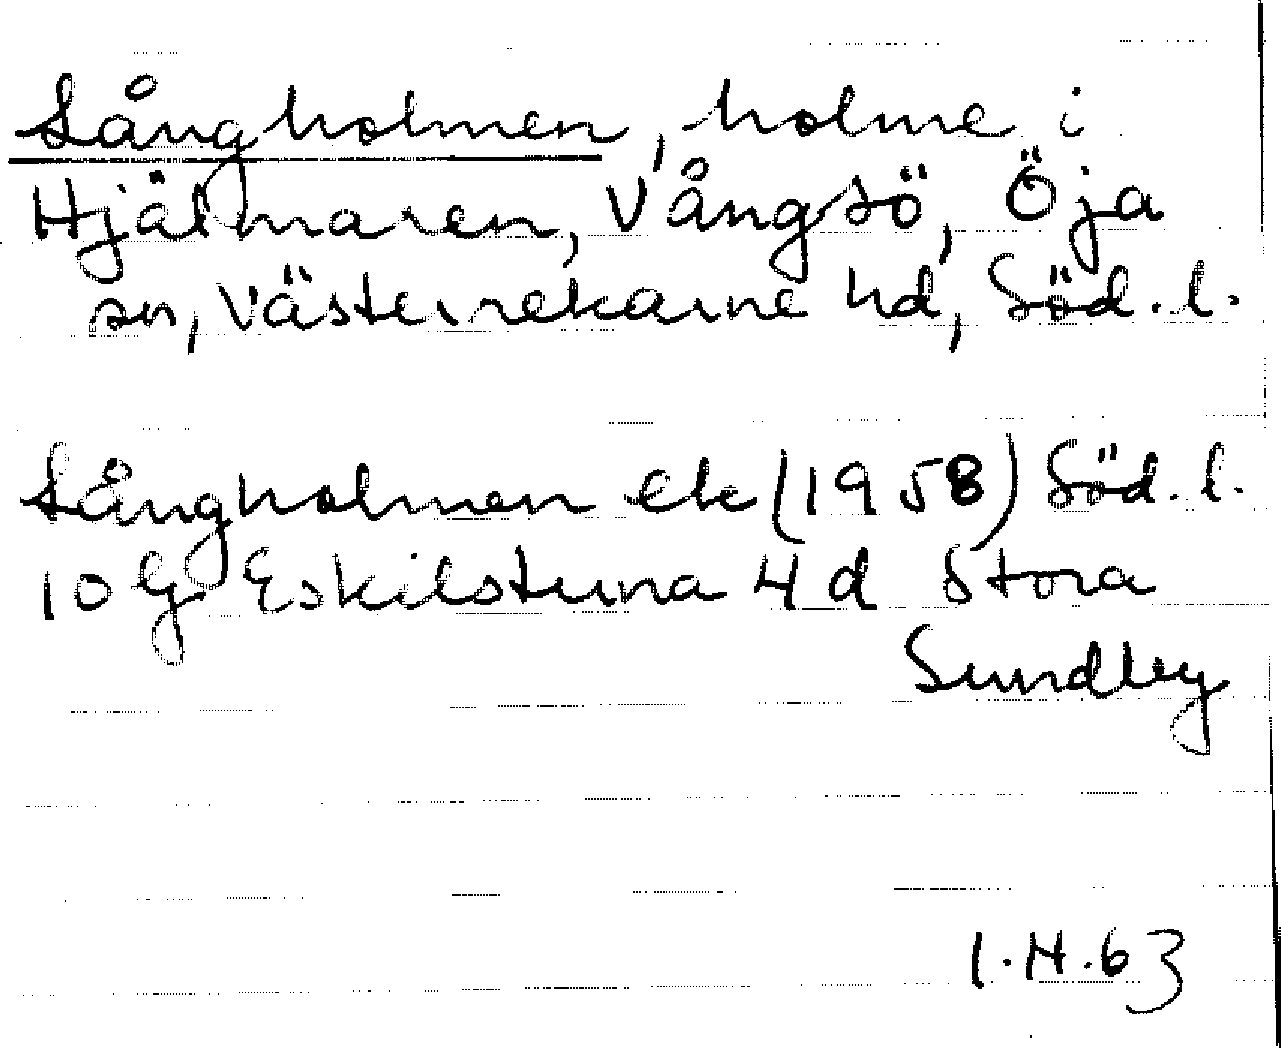 Långholmen, holme i
Hjälmaren, Vångsö, Öja
sn, Västerrekarne hd, Söd. l.
Långholmen ek (1958) Söd. l.
10 G Eskilstuna 4 d Stora
Sundby
I.H.63